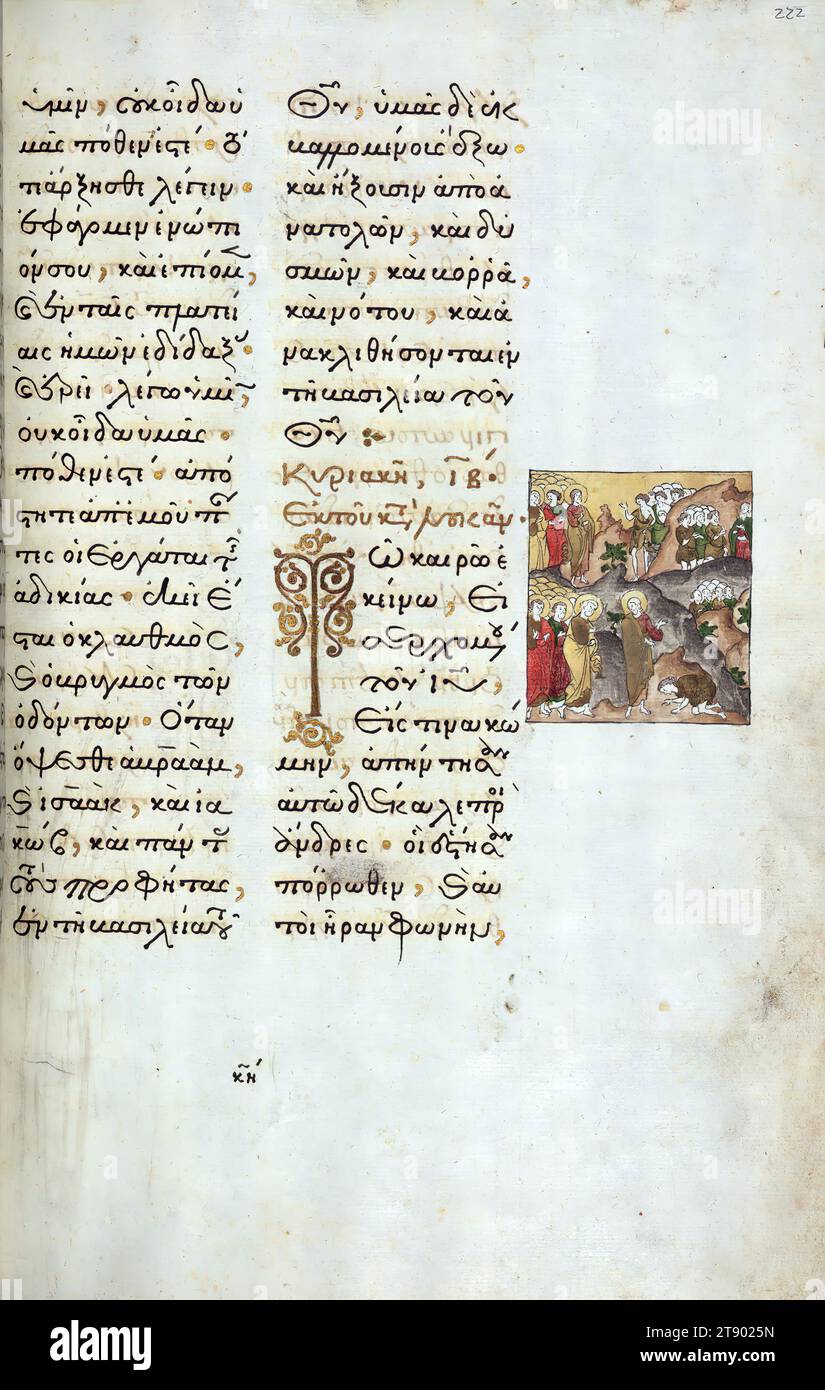 222
ὑμῖν, οὐκ οἶδα ὑ
μᾶς πόθεν ἐστέ· τό
τε ἄρξησθε λέγειν·
ἐφάγομεν ἐνώπι
όν σου, καὶ ἐπίομ,
ἐν ταῖς πλατεί
αις ἡμῶν ἐδίδαξ·
ἐρεῖ λέγω ὑμῖ,
οὐκ οἶδα ὑμᾶς
πόθεν ἐστέ· ἀπό
στητε ἀπ' ἐμοῦ π
τες οἱ ἐργάται τ
ἀδικίας· ἐκεῖ ἔ
σται ὁ κλαυθμὸς,
ὁ βρυγμὸς τῶν
ὀδόντων· ὅταν
ὄψεσθε ἀβραὰμ,
ἰσαὰκ, καὶ ἰα
κώβ, καὶ πάντ
τοὺς προφήτας,
ἐν τῇ βασιλείᾳ τοῦ
θυ, ὑμᾶς δὲ ἐκ
βαλλομένους ἔξω·
καὶ ἥξουσιν ἀπὸ ἀ
νατολῶν, καὶ δυ
σμῶν, καὶ βορρᾶ,
καὶ νότου, καὶ ἀ
νακλιθήσονται ἐν
τῇ βασιλείᾳ τοῦ
θυ
Κυριακῇ ιβ·
Ἐκ τοῦ κατ λουκᾶν·
Τῶ καιρῶ ἐ
κείνω, εἰ
σερχομ
τοῦ ιυ,
εἴς τινα κώ
μην, ἀπήντησαν
αὐτῶ δέκα λεπροὶ
ἄνδρες· οἳ ἔστησαν
πόρρωθεν, αὐ
τοὶ ἦραν φωνὴν,
κη
alamy
alamy
alamy
alamy
Image ID: 2T9025N
www.alamy.com